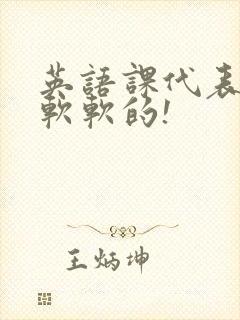 英語課代表
軟軟的！
王炳坤